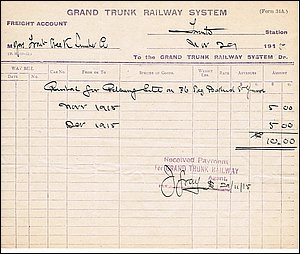 GRAND TRUNK RAILWAY SYSTEM
(Form 318.)
FREIGHT ACCOUNT
Toronto Station
Nov 29 1915
M
To the GRAND TRUNK RAILWAY SYSTEM Dr.
WAY BILL. CAR No. FROM OR TO SPECIES OF GOODS. WEIGHT Lbs. RATE. ADVANCES AMOUNTS
DATE. No.
Rental for on
Nov 1915 5 00
Dec 1915 5 00
$10.00
Received Payment
for GRAND TRUNK RAILWAY
Agent.
J Gray 29/11/15